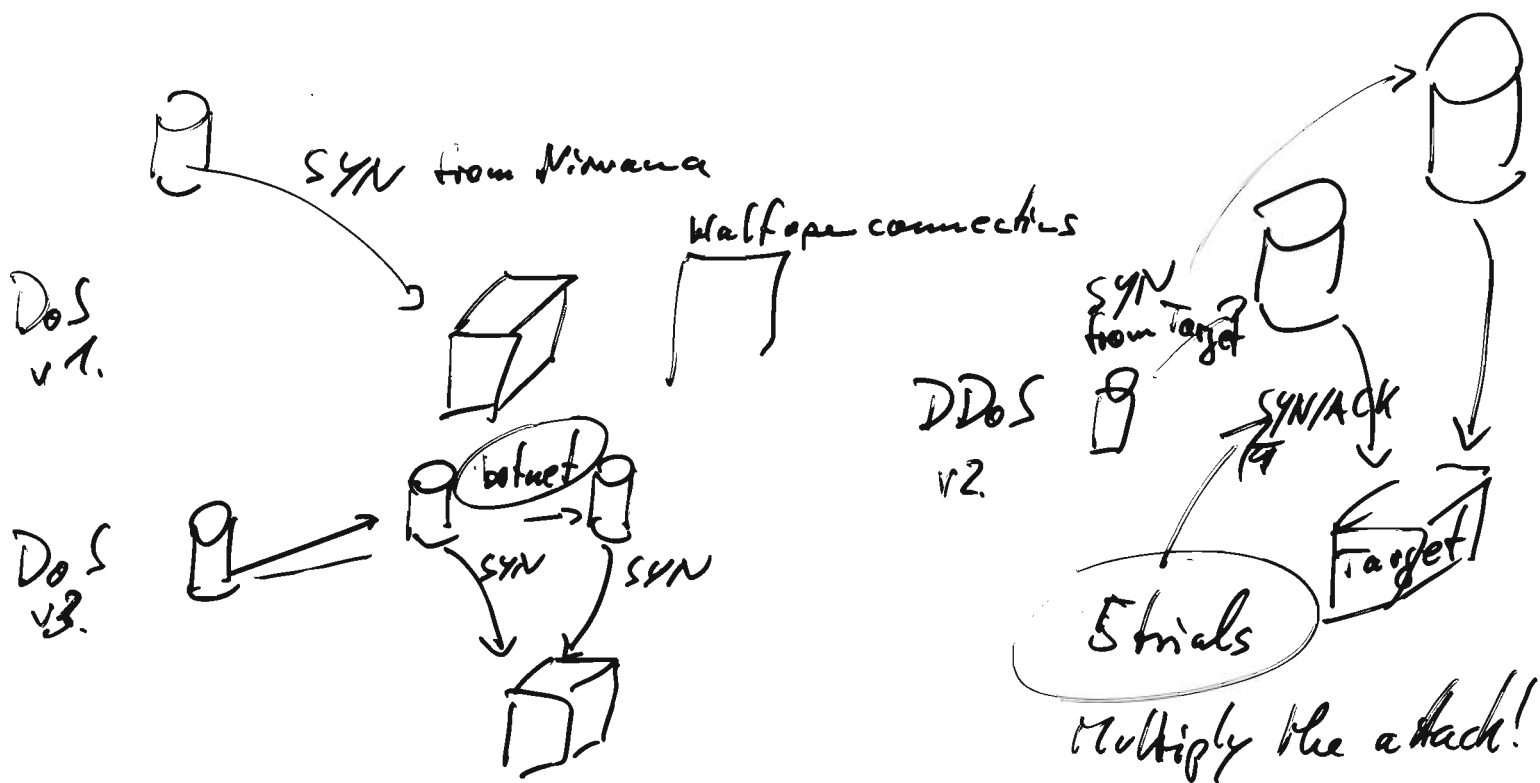 SYN from Nirvana
Half open connections
DoS
v 1.
botnet
SYN
SYN
DoS
v3.
SYN
from Target
DDoS
v2.
SYN/ACK
Target
5 trials
Multiply the attack!